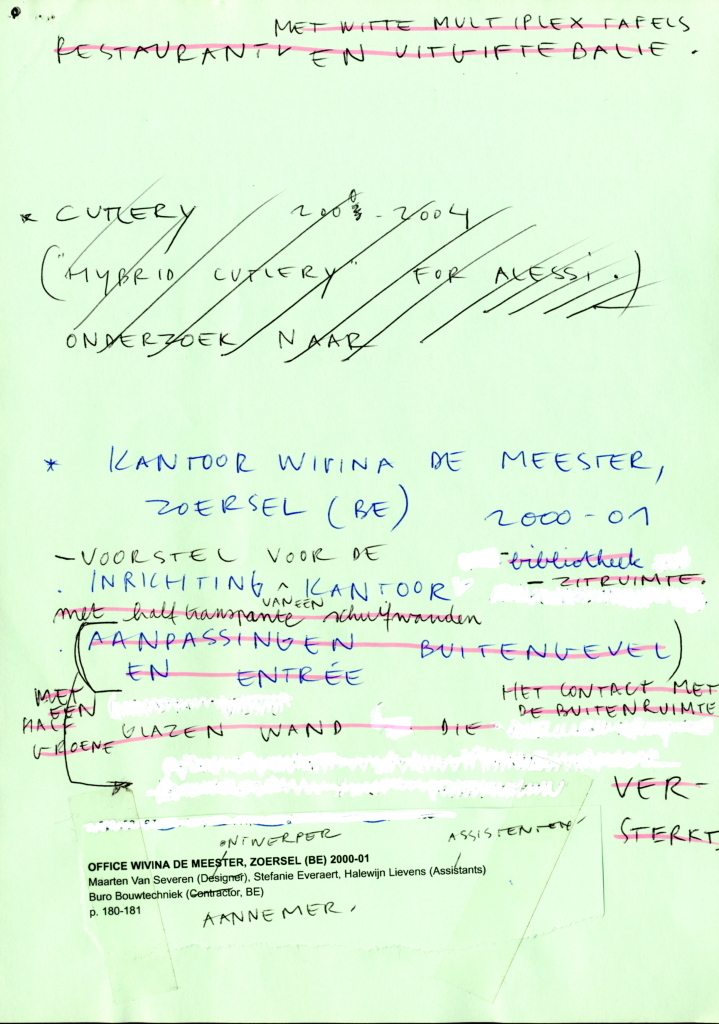 MET WITTE MULTIPLEX TAFELS
RESTAURANT EN UITGIFTEBALIE.
* CUTLERY 2003-2004
("HYBRID CUTLERY" FOR ALESSI.)
ONDERZOEK NAAR
* KANTOOR WIVINA DE MEESTER,
ZOERSEL (BE) 2000-01
- VOORSTEL VOOR DE
- bibliotheek
. INRICHTING ^ KANTOOR
- ZITRUIMTE.
VAN EEN
met halftranspante schuifwanden
. (AANPASSINGEN BUITENGEVEL)
EN ENTRÉE
MET
EEN
HALF
GROENE
HET CONTACT MET
DE BUITENRUIMTE
GLAZEN WAND DIE
VER-
STERKT
ONTWERPER ASSISTENTEN
OFFICE WIVINA DE MEESTER, ZOERSEL (BE) 2000-01
Maarten Van Severen (Designer), Stefanie Everaert, Halewijn Lievens (Assistants)
Buro Bouwtechniek (Contractor, BE)
p. 180-181
AANNEMER.